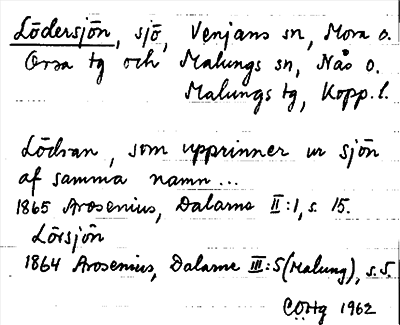 Lödersjön, sjö, Venjans sn, Mora o.
Orsa tg och Malungs sn, Nås o.
Malungs tg, Kopp. l.
Lödran, som upprinner ur sjön
af samma namn...
1865 Arosenius, Dalarne II:1, s. 15.
Lörsjön
1864 Arosenius, Dalarne III:5 (Malung), s. 5.
1962